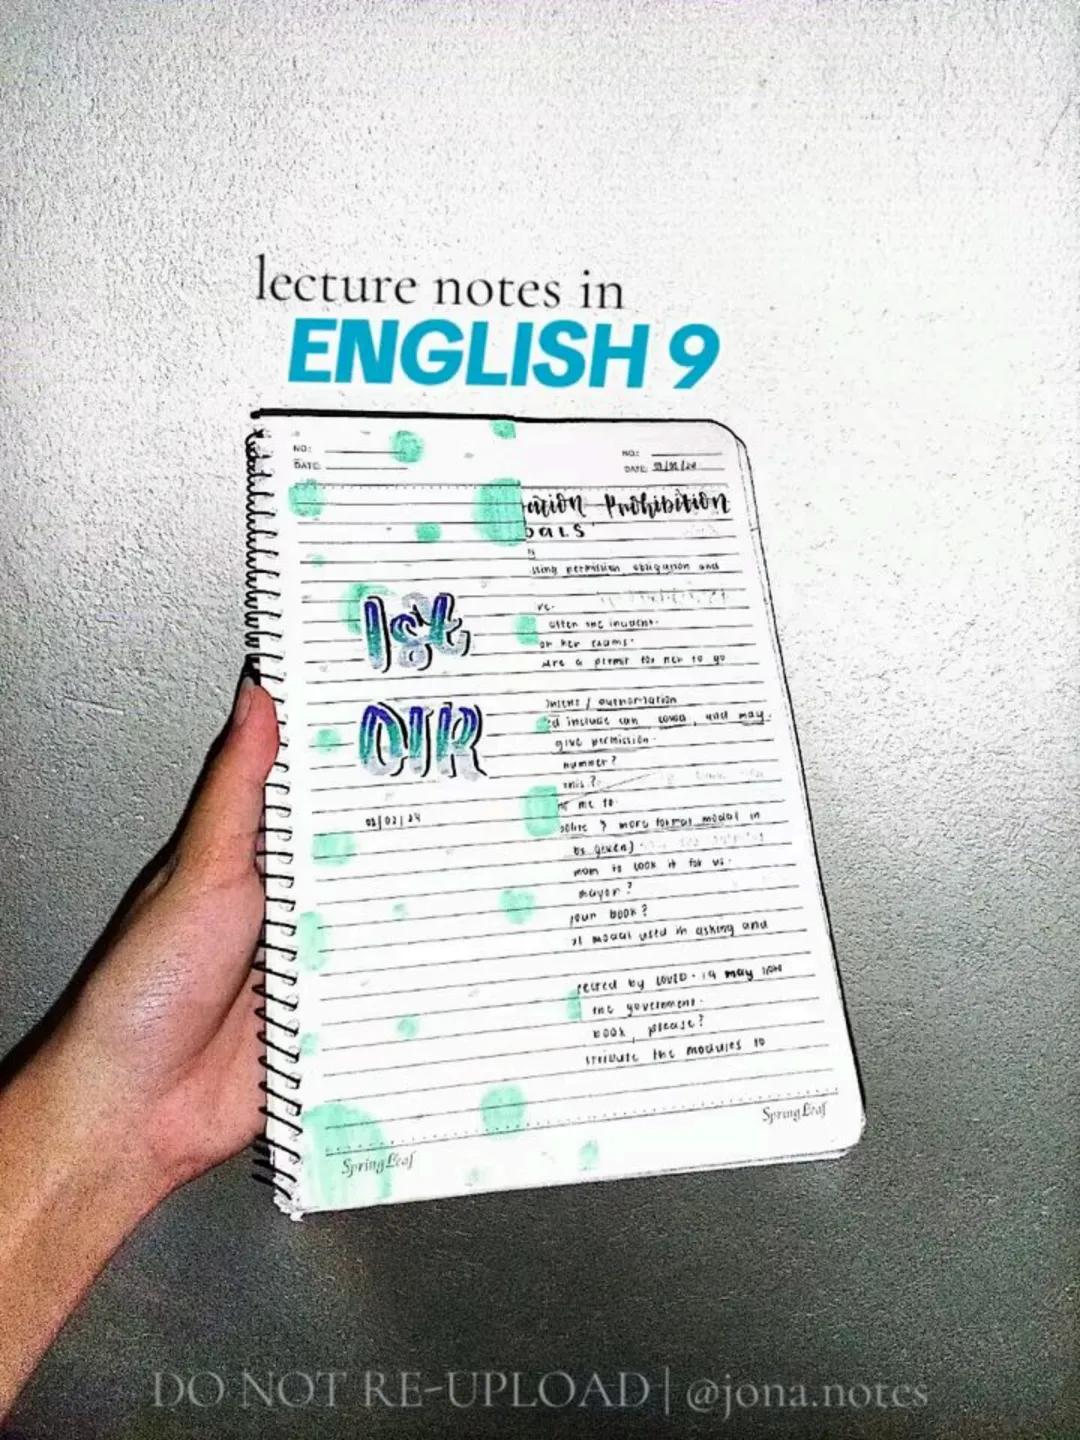 lecture notes in
ENGLISH 9
NO:
DATE:
1st
QTR
02/02/24
SpringLeaf
NO:
DATE:
ation Prohibition
OALS
ssing permission, obligation and
ve.
after the incident.
or her exams.
are a permit for her to go
onsent / authorization
d include can could, and may.
give permission.
number?
this?
me to.
polite & more formal modal in
is given)
mom to cook it for us.
mayor?
your book?
st modal used in asking and
fected by COVID-19 may
the government.
book, please?
stribute the modules to
SpringLeaf
DO NOT RE-UPLOAD | @jona.notes